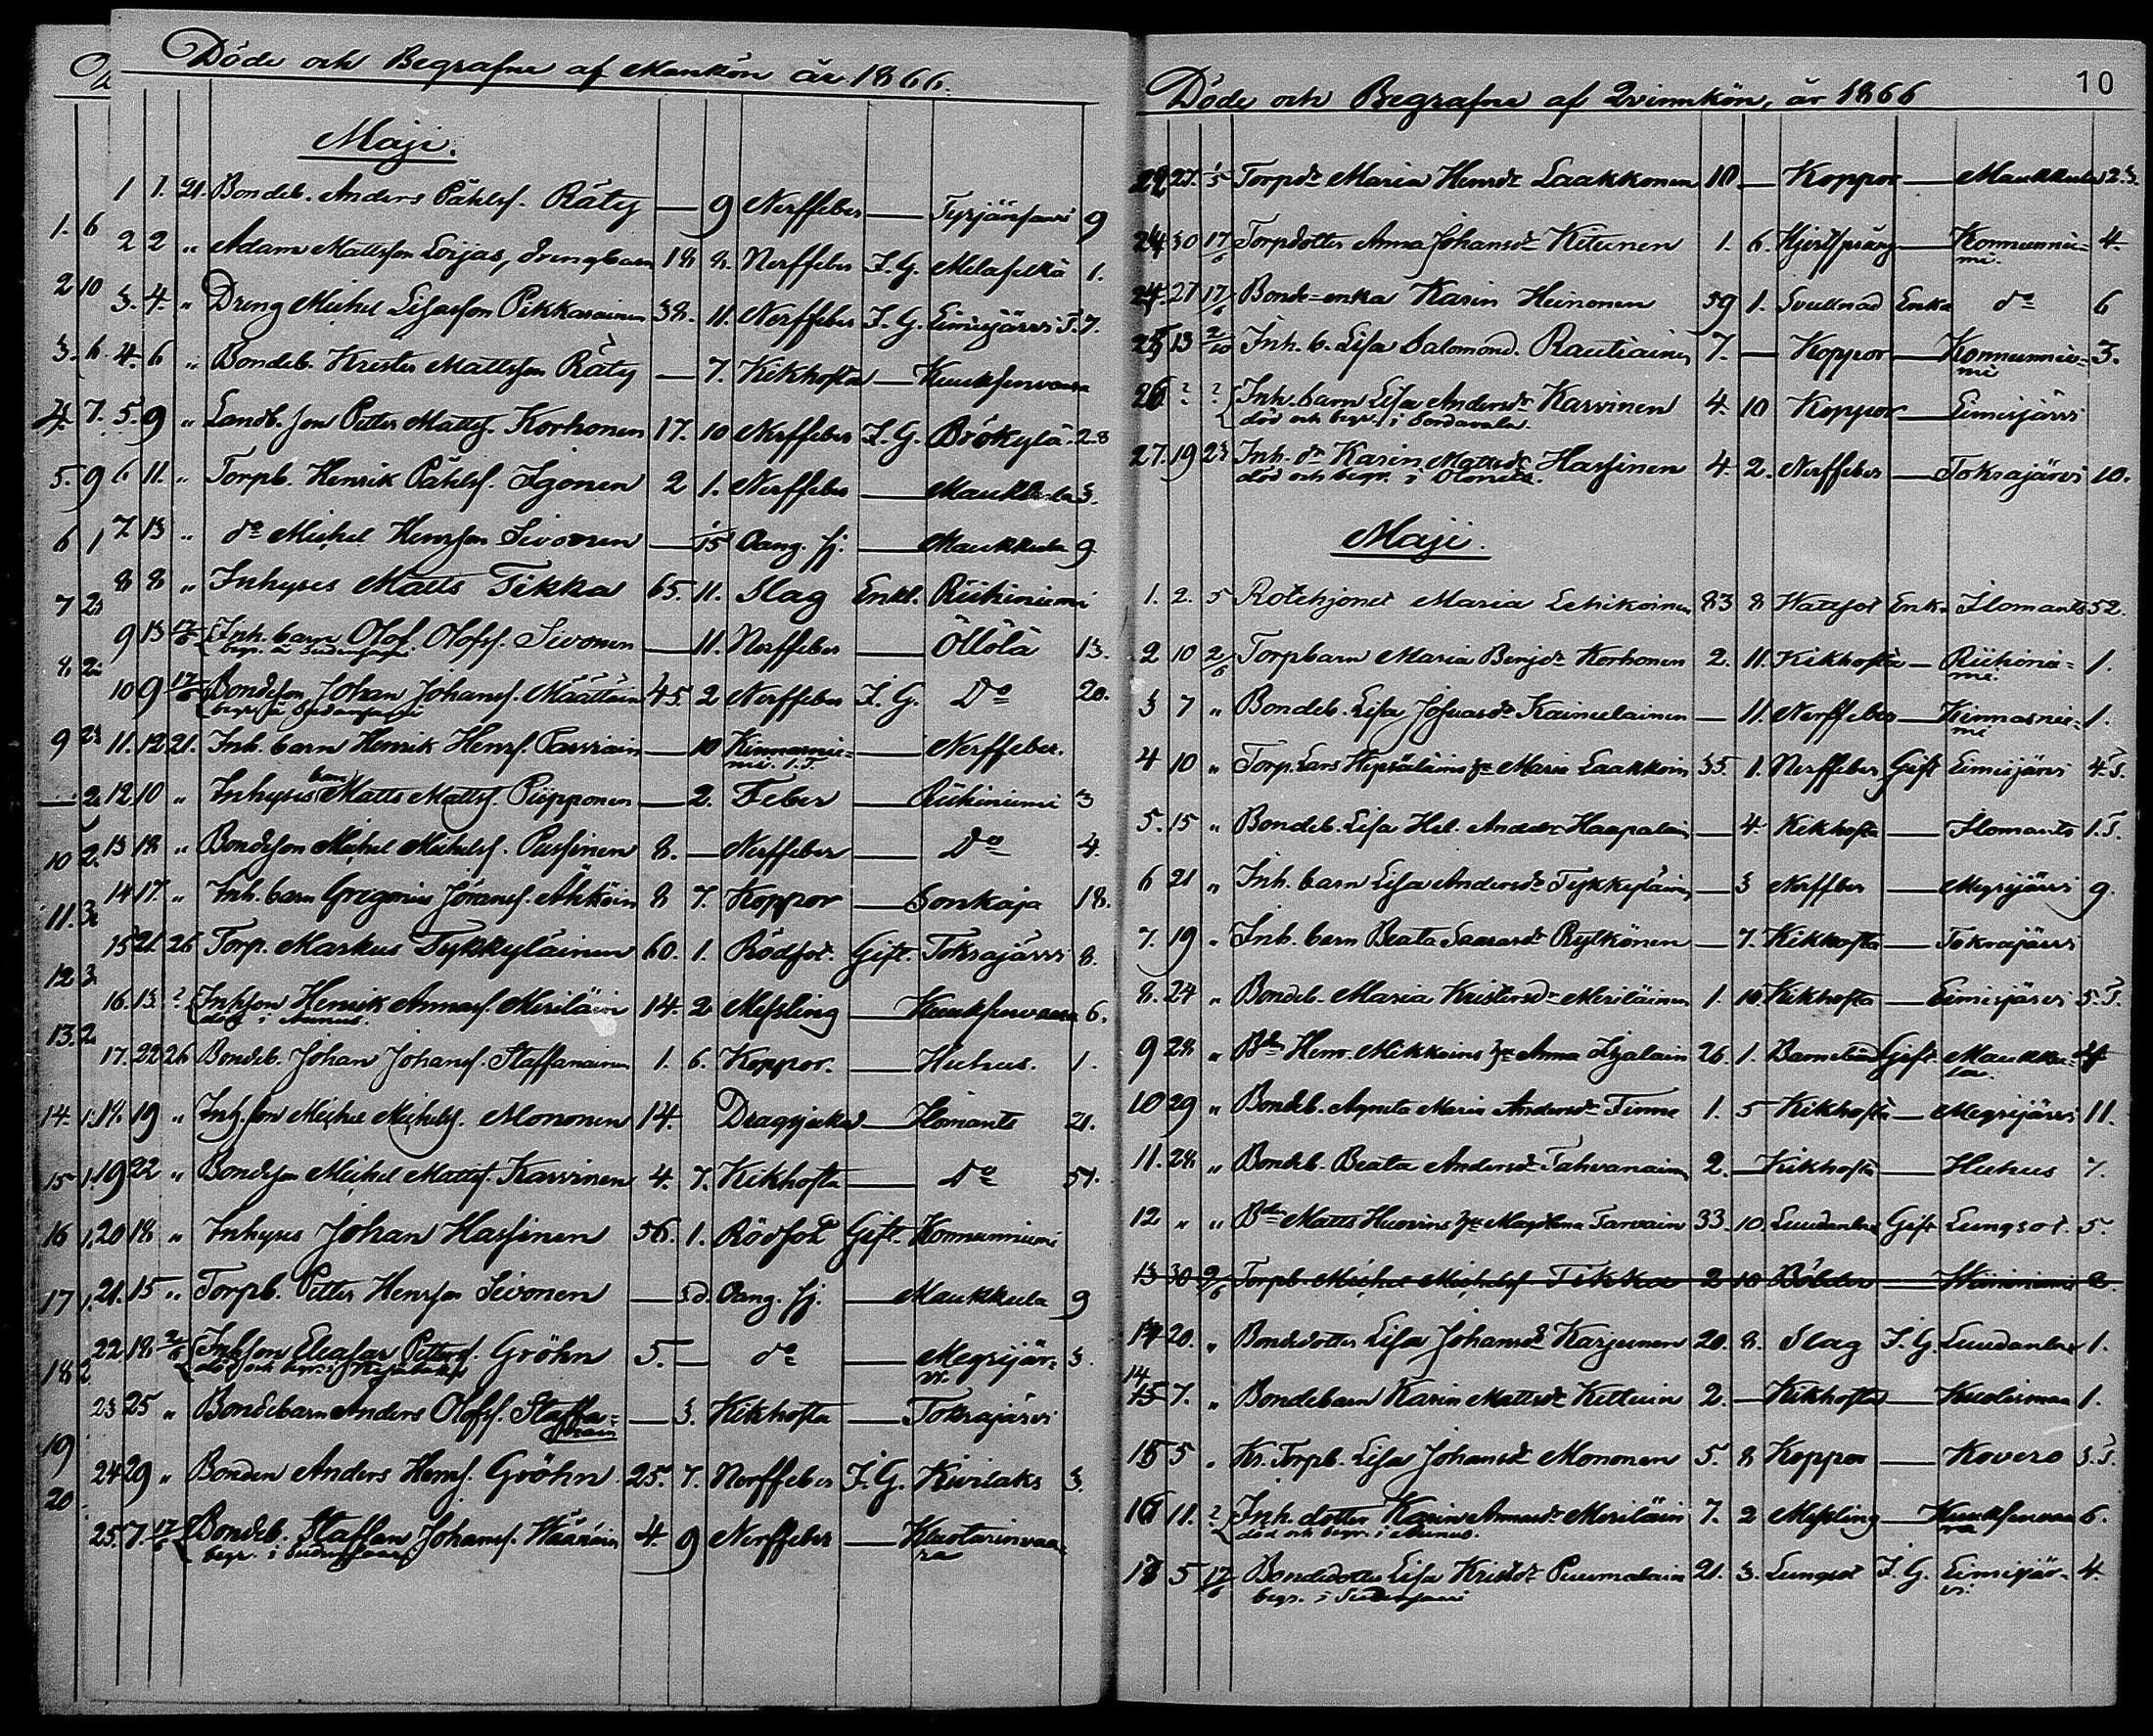 Döde och Begrafne af Mankön år 1866.
Maji.
1 1. 21. Bondeb. Anders Påhlsf. Räty — 9 Nerffeber — Tyrjänsaari 9
2 2 „ Adam Mattsson Loijas, Drengbarn 18 8. Nerffeber I. G. Melaselkä 1.
3. 4. „ Dreng Michel Pikkarainen 38. 11. Nerffeber I. G. Eimisjärvi 7.
4. 6 „ Bondeb. Krister Mattsson Räty — 7. Kikhosta — Kuuksenvaara
5. 9 „ Landb. son Petter Mattsf. Korhonen 17. 10 Nerffeber I. G. 28
6 11. „ Torpb. Henrik Påhlsf. Igonen 2 1. Nerffeber — Maukkula 3.
7. 13 „ do Michel Henrsson Sivonen — 15 Oäng. sj. — Maukkula 9
8 8 „ Inhyses Matts Tikka 65. 11. Slag Enkl. Riihiniemi
9 13 17/6 Inh. barn Olof Olofsf. Sivonen — 11. Nerffeber — Öllölä 13.
10 9 17/6 Bondeson Johan Johansf. Määttäin 45 2 Nerffeber I. G. Do 20.
11. 12 21. Inh. barn Henrik Henrsf. Parviain — 10 Kinnasnie- — Nerffeber.
mi. 1. T.
12 10 „ Inhyses barn Matts Mattsf. Piipponen — 2. Feber — Riihiniemi 3
13 18 „ Bondeson Michel Michelsf. Pussinen 8. — Nerffeber — Do 4.
14 17. „ Inh. barn Gregorius Göransf. 8 7. Koppor — Sonkaja 18.
15 21. 26 Torp. Markus Tykkyläinen 60. 1. Rödsot. Gift. Tokrajärvi 8.
16. 13 ? Inhson Henrik Annasf. Meriläin 14. 2 Messling — Kuuksenvaara 6.
död i Aunus.
17. 22 26 Bondeb. Johan Johansf. Staffanainen 1. 6. Koppor. — Huhus. 1.
18. 19 „ Inh. son Michel Michelsf. Mononen 14. Dragsjuka — Ilomants 21.
19 22 „ Bondeson Michel Mattsf. Karvinen 4. 7. Kikhosta — Do 57.
20 18 „ Inhyses Johan Hassinen 56. 1. Rödsot Gift. Konnunniemi
21. 15 „ Torpb. Petter Henrsson Sivonen — 3d. Oäng. sj. — Maukkula 9
22 18 2/6 Inhson Eleasar Gröhn 5. — do — Megrijär- 3.
död och begr. i vi.
23 25 „ Bondebarn Anders Olofsf. Staffa- — 3. Kikhosta — Tokrajärvi
nain
24 29 „ Bonden Anders Henrsf. Gröhn 25. 7. Nerffeber I. G. Kivilaks 3.
25. 7. 17/6 Bondeb. Staffan Johansf. Häänäin 4. 9 Nerffeber — Kuolarinvaa-
begr. i ra
Döde och Begrafne af Qvinnkön, år 1866
10
22. 1/5 Torpdr Maria Henrdr Laakkonen 10 — Koppor — Maukkula 23.
24. 30 17/6 Torpdotter Anna Johansdr Kitunen 1. 6. Hjertsprång — Konnunnie- 4.
mi.
24. 27 17/6 Bonde=enka Karin Heinonen 59 1. Svullnad Enka do 6
25 13 2/10 Inh. b. Lisa Salomond. Rautiainen 7. — Koppor — Konnunnie- 3.
mi
26 ? ? Inh. barn Lisa Andersdr Karvinen 4. 10 Koppor — Eimisjärvi
död och begr. i Sordavala.
27. 19 23 Inh. dr Karin Mattsdr Hassinen 4. 2. Nerffeber — Tokrajärvi 10.
död och begr. i Olonets.
Maji.
1. 2. 5 Rotehjonet Maria Lehikoinen 83 8 Wattsot Enka Ilomants 52.
2 10 2/6 Torpbarn Maria Benjdr Korhonen 2. 11. Kikhosta — Riihinie- 1.
mi.
3 7 „ Bondeb. Lisa Kaimelainen — 11. Nerffeber — Kinnasnie- 1.
mi
4 10 „ Torp. Lars Heposalains h. Maria Laakkoin 35. 1. Nerffeber Gift Eimisjärvi 4. T.
5. 15 „ Bondeb. Lisa Hel. Andrdr Haapalain — 4. Kikhosta — Ilomants 1. T.
6 21 „ Inh. barn Lisa Andersdr Tykkyläinen — 3 Nerffber — Megrijärvi 9.
7. 19 „ Inh. barn Beata Rytkönen — 7. Kikhosta — Tokrajärvi
8. 24 „ Bondeb. Maria Kristersdr Meriläinen 1. 10 Kikhosta — Eimisjärvi 5. T.
9 28 „ Bdn Henr. Mikkoins h. Anna 26. 1. Barnsbörd Gift. Maukku-
la.
10 29 „ Bondeb. Agneta Maria Andersdr Timme 1. 5 Kikhosta — Megrijärvi 11.
11. 28 „ Bondeb. Beata Andersdr Tahvanain 2. — Kikhosta — Huhus 7.
12 „ „ Bdn Matts Huovins h. Magdlena Tarvain 33. 10 Luudanlax Gift Lungsot. 5.
13 30 2/6 Torpb. Michel Michelsf Tikka 2 10 Bölder — 2.
14 20. „ Bondedotter Lisa Johansdr Karjunen 20. 8. Slag I. G. Luudanlax 1.
14
15 7. „ Bondebarn Karin Mattsdr Kettuin 2. — Kikhosta — Kuolismaa 1.
15 5 „ Kr. Torpb. Lisa Johansdr Mononen 5. 8 Koppor — Kovero 3. T.
16 11. ? Inh. dotter Karin Annasdr Meriläin 7. 2 Messling — Kuuksenvaa 6.
död och begr. i Aunus. ra
5 17/6 Bondedotter Lisa Kristdr Puumalain 21. 3. Lungsot I. G. Eimisjär- 4.
begr. i vi.